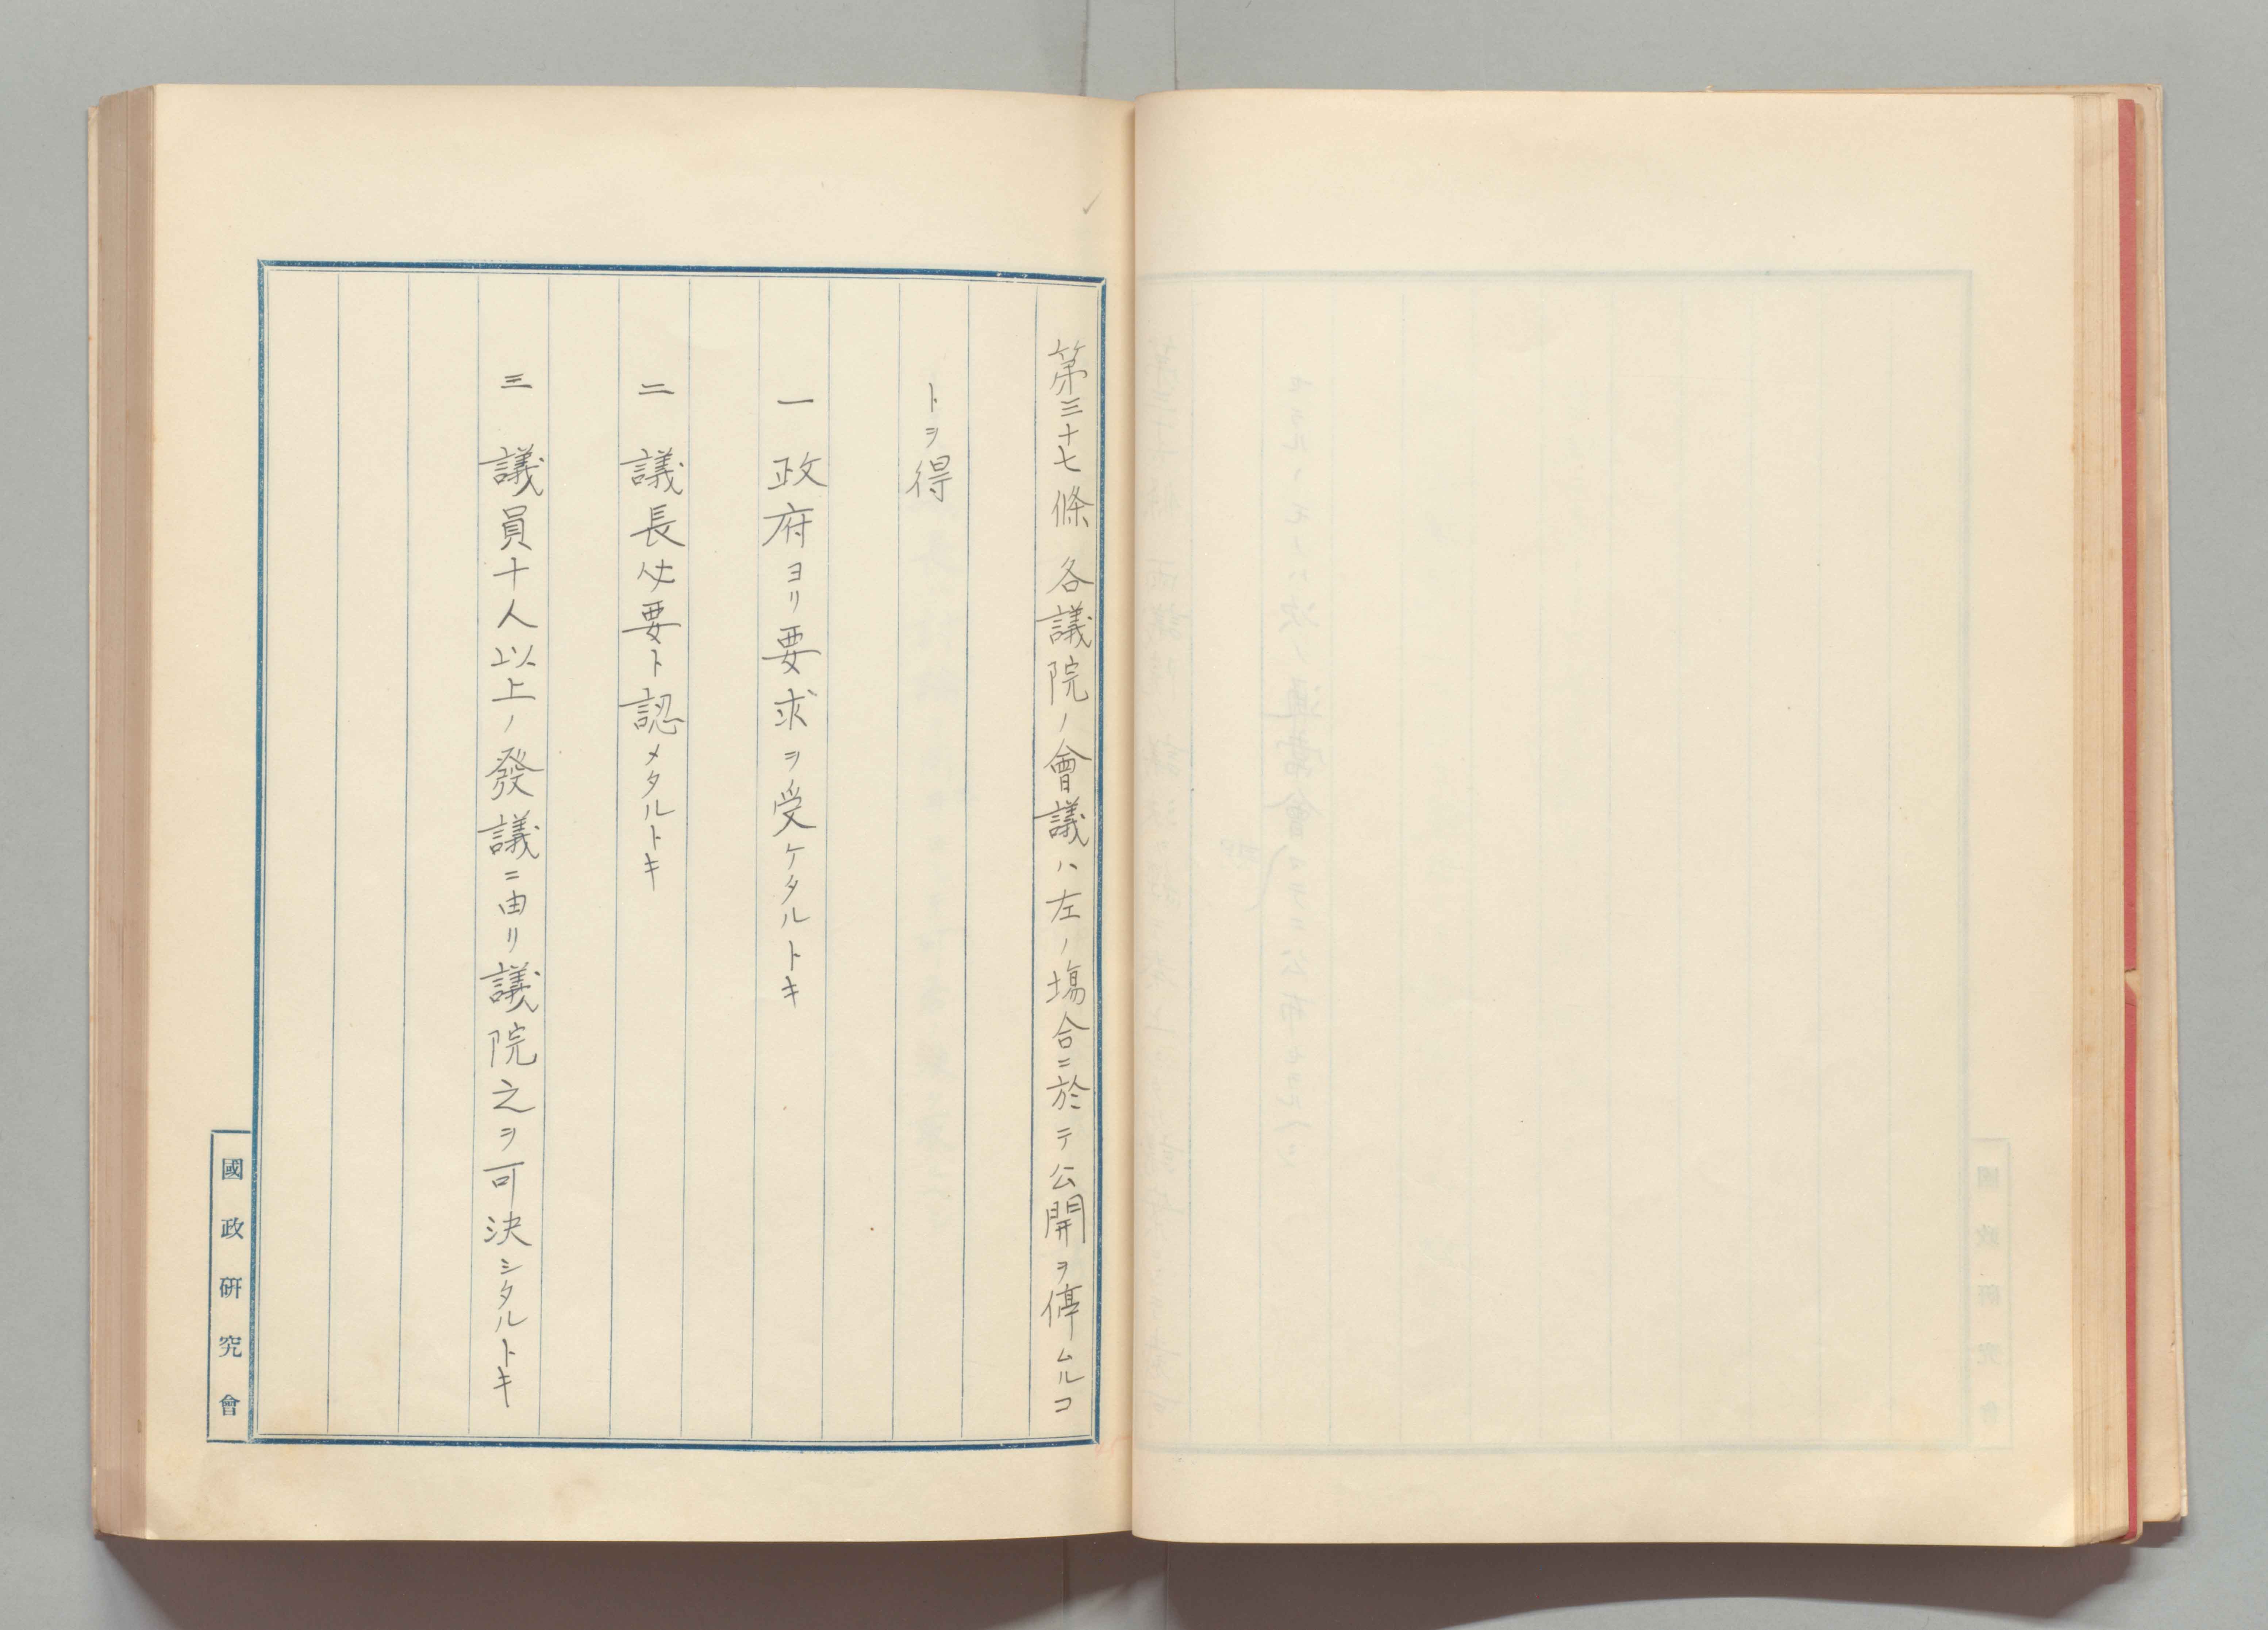 第三十七條 各議院ノ會議ハ左ノ塲合ニ於テ公開ヲ停ムルコ
トヲ得
一 政府ヨリ要求ヲ受ケタルトキ
二 議長必要ト認メタルトキ
三 議員十人以上ノ發議ニ由リ議院之ヲ可決シタルトキ
國政研究會